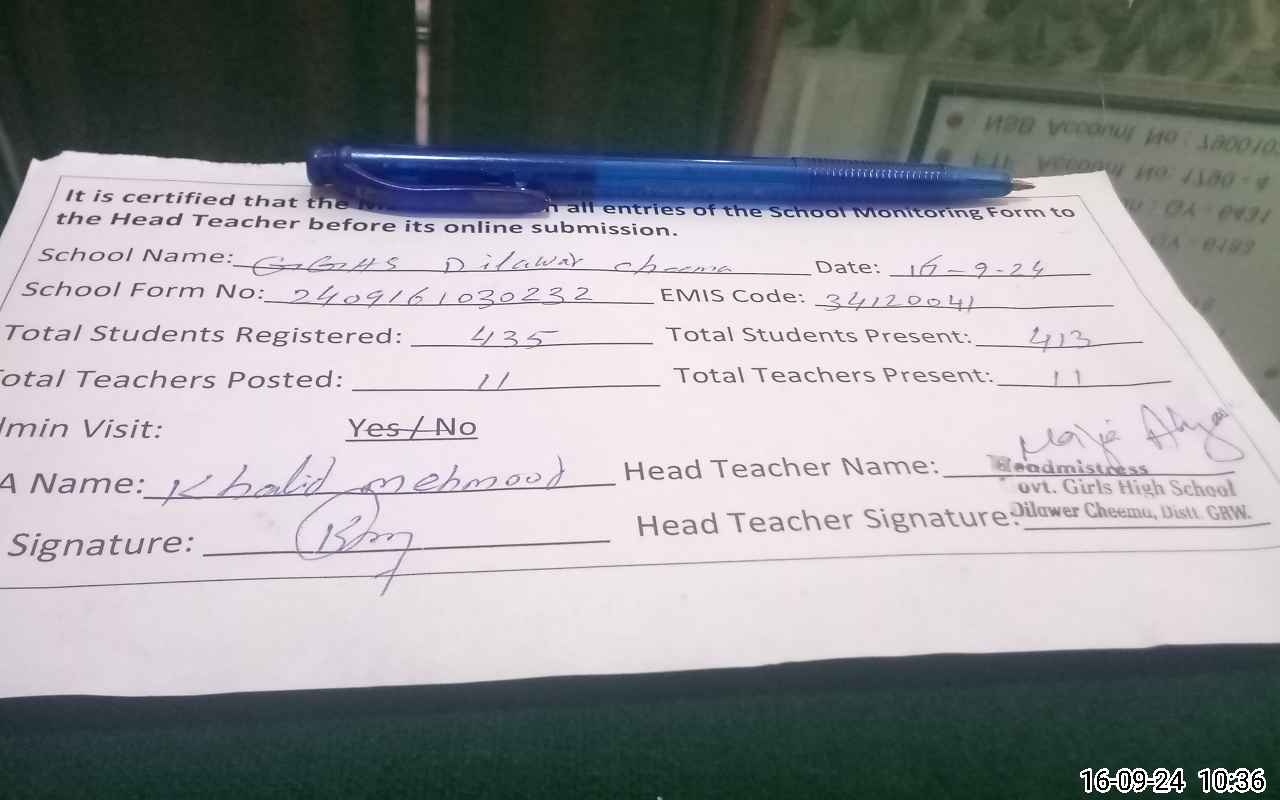 It is certified that the all entries of the School Monitoring Form to
the Head Teacher before its online submission.
School Name: GGHS Dilawar Cheema Date: 16-9-24
School Form No: 2409161030232 EMIS Code: 34120041
Total Students Registered: 435 Total Students Present: 413
otal Teachers Posted: 11 Total Teachers Present: 11
dmin Visit: Yes / No
A Name: Khalid mehmood Head Teacher Name:
Headmistress
ovt. Girls High School
Signature: Head Teacher Signature:
Dilawer Cheema, Distt. GRW.
NSB Account No :
Account No: 1790 - 4
16-09-24 10:36